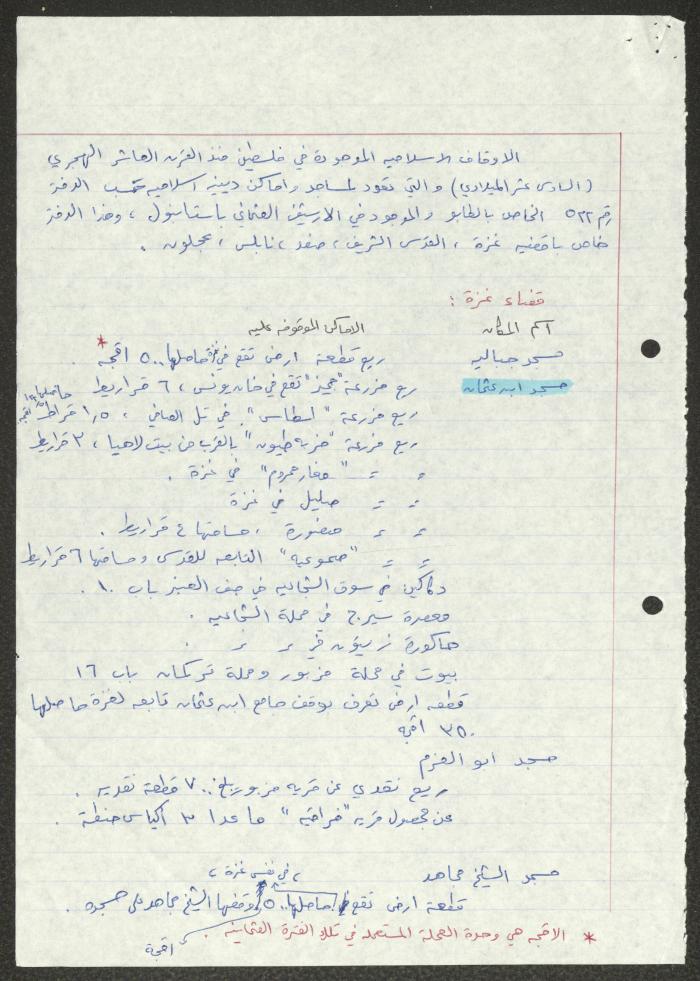 الاوقاف الاسلاميه الموجودة في فلسطين منذ القرن العاشر الهجري
(السادس عشر الميلادي) و التي تعود لمساجد واماكن دينيه اسلاميه حسب الدفتر
رقم ٥٢٢ الخاص بالطابو والموجود في الارشيف العثماني باستانبول ، وهذا الدفتر
خاص باقضيه غزة ، القدس الشريف ، صفد ، نابلس ، عجلون .
قضاء غزة :
اسم المكان الاماكن الموقوفه عليه
مسجد جباليه ريع قطعة ارض تقع في غزة حاصلها ٥٠٠ اقجه *
مسجد ابن عثمان ريع مزرعة تقع في خان يونس ، ٦ قراريط حاصلها
ريع مزرعة في تل الصافي ، ١٫٥ قراط
ريع مزرعة "خربه " بالقرب من بيت لاهيا ، ٣ قراريط
" " " " في غزة .
" " في غزة
" " ، مساحتها ٤ قراريط .
" " التابعه للقدس ومساحتها ٦ قراريط
دكاكين في سوق الشجاعيه في باب ١٠ .
ومعصرة سيرج في محلة الشجاعيه .
حاكورة زيتون في " " .
بيوت في محلة مزبور ومحلة تركمان باب ١٦
قطعه ارض تعرف بوقف جامع ابن عثمان تابعه لغزة حاصلها
٣٥٠ اقجه
مسجد ابو العزم
ريع نقدي عن قريه مزبور ٧٠٠ قطعة نقديه .
عن محصول قريه ما عدا ٣ اكياس حنطة .
مسجد الشيخ مجاهد ، في نفس غزة ،
قطعة ارض تقع حاصلها ٥٠٠ وقفها الشيخ مجاهد على مسجده .
اقجة
* الاقجه هي وحدة العملة المستعمله في تلك الفترة العثمانيه .